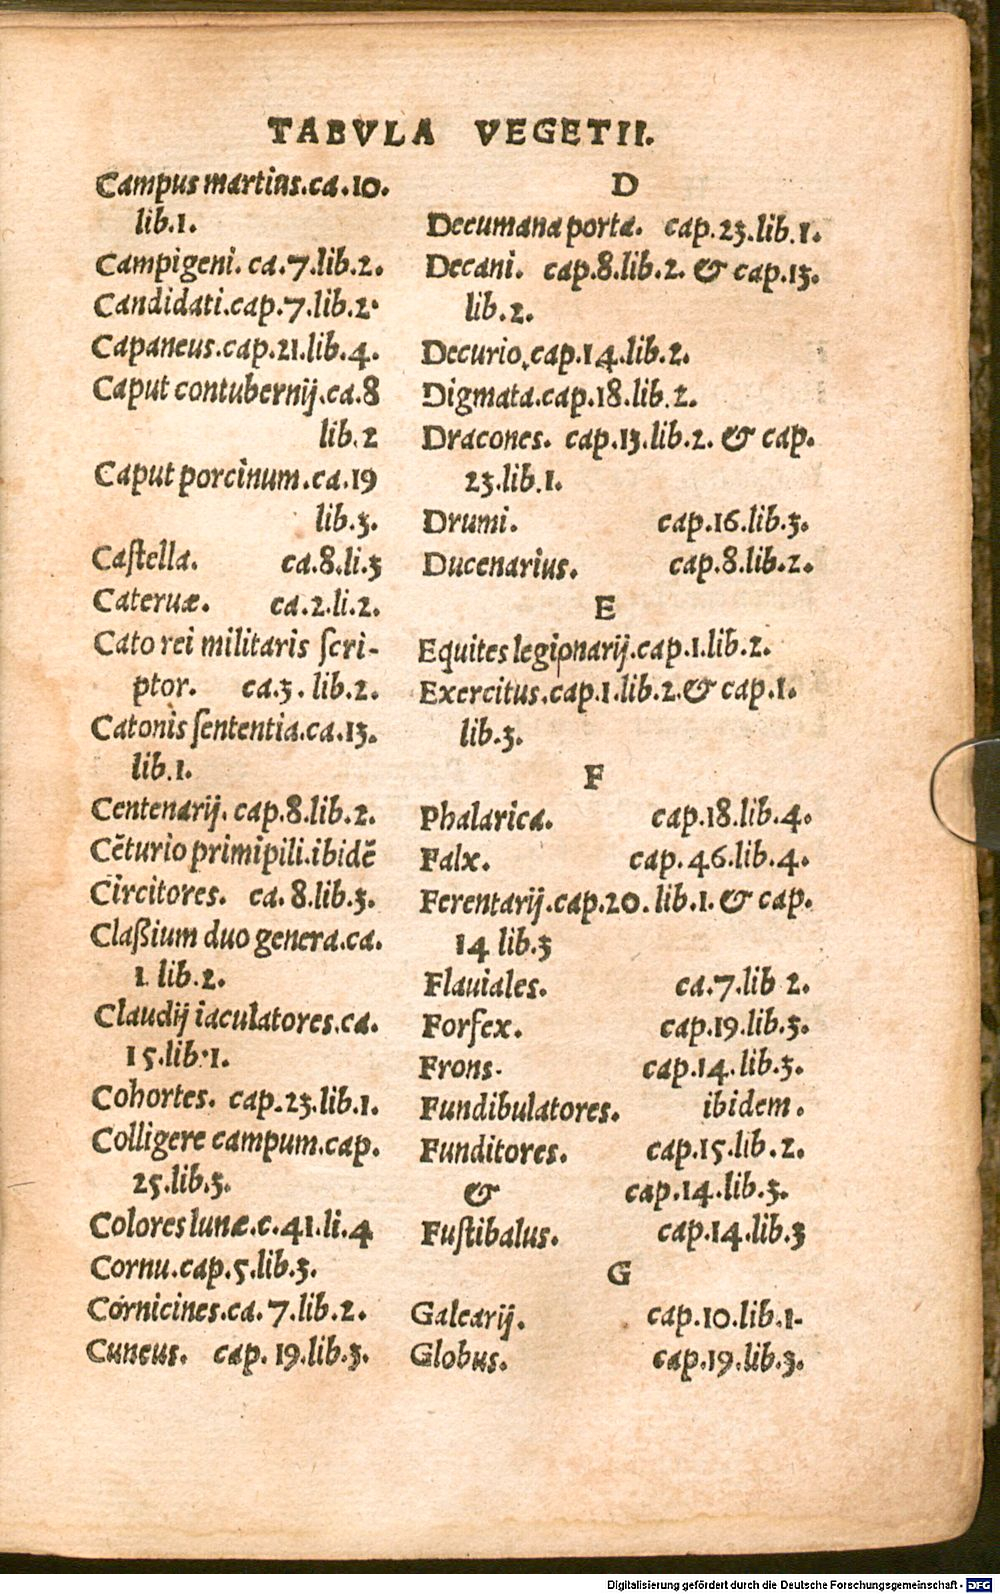 TABVLA VEGETII.
Campus martius.ca.10.
lib.1.
Campigeni. ca.7.lib.2.
Candidati.cap.7.lib.2.
Capaneus.cap.21.lib.4.
Caput contubernij.ca.8
lib.2
Caput porcinum.ca.19
lib.3.
Caſtella. ca.8.li.3
Cateruæ. ca.2.li.2.
Cato rei militaris ſcri-
ptor. ca.3. lib.2.
Catonis ſententia.ca.13.
lib.1.
Centenarij. cap.8.lib.2.
Cẽturio primipili.ibidẽ
Circitores. ca.8.lib.3.
Claßium duo genera.ca.
1.lib.2.
Claudij iaculatores.ca.
15.lib.1.
Cohortes. cap.23.lib.1.
Colligere campum.cap.
25.lib.3.
Colores lunæ.c.41.li.4
Cornu.cap.5.lib.3.
Cornicines.ca.7.lib.2.
Cuneus. cap.19.lib.3.
D
Decumana porta. cap.23.lib.1.
Decani. cap.8.lib.2. & cap.13.
lib.2.
Decurio,cap.14.lib.2.
Digmata.cap.18.lib.2.
Dracones. cap.13.lib.2. & cap.
23.lib.1.
Drumi. cap.16.lib.3.
Ducenarius. cap.8.lib.2.
E
Equites legionarij.cap.1.lib.2.
Exercitus.cap.1.lib.2.& cap.1.
lib.3.
F
Phalarica. cap.18.lib.4.
Falx. cap.46.lib.4.
Ferentarij.cap.20.lib.1.& cap.
14 lib.3
Flauiales. ca.7.lib 2.
Forſex. cap.19.lib.3.
Frons. cap.14.lib.3.
Fundibulatores. ibidem.
Funditores. cap.15.lib.2.
& cap.14.lib.3.
Fuſtibalus. cap.14.lib.3
G
Galearij. cap.10.lib.1.
Globus. cap.19.lib.3.
Digitalisierung gefördert durch die Deutsche Forschungsgemeinschaft - DFG